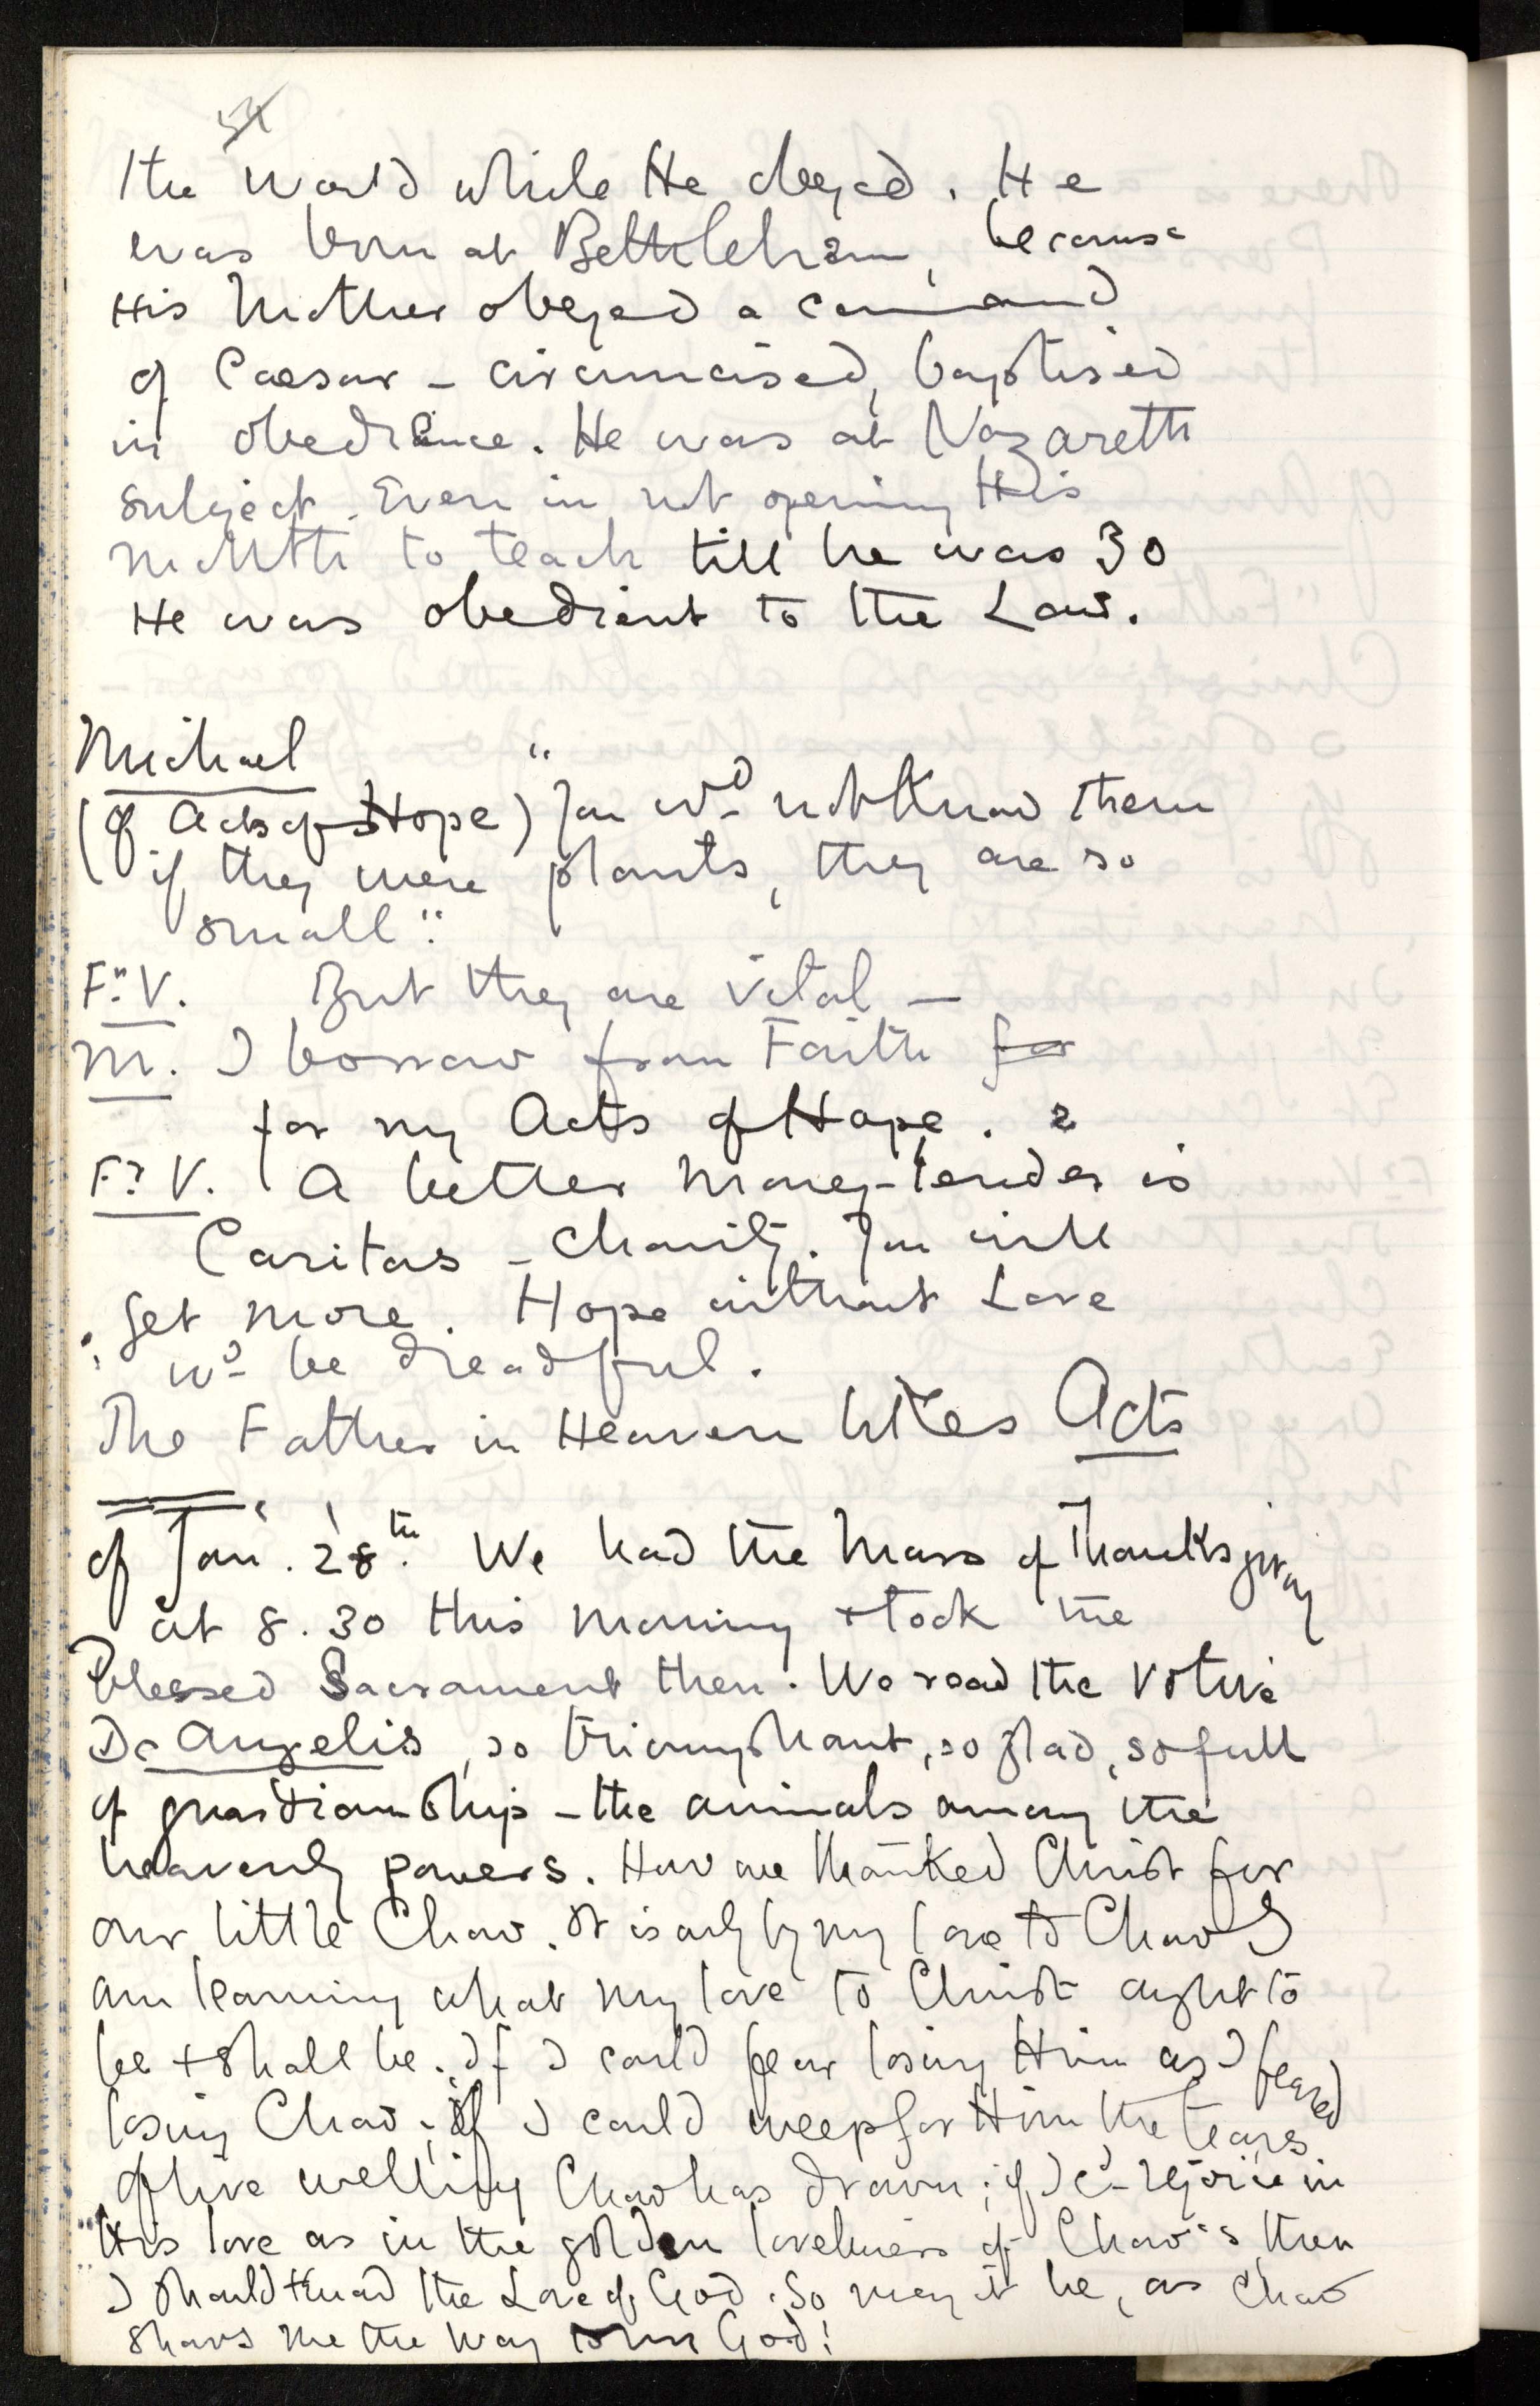 54
the world while He obeyed. He
was born at Bethlehem, because
His Mother obeyed a command
of Caesar – circumcised, baptised
in obedience. He was at Nazareth
subject. Even in not opening His
mouth to teach till he was 30
He was obedient to the Law.
Michael
(of Acts of Hope) "You wd not know them
if they were plants, they are so
small".
Fr V. But they are vital —
M. I borrow from Faith for
for my Acts of Hope.
Fr V. A better money-lender is
Caritas – Charity. You will
get more. Hope without Love
wd be dreadful.
The Father in Heaven likes Acts
of Jan. 28th. We had the Mass of Thanksgiving
at 8.30 this morning + took the
Blessed Sacrament then. We read the Votive
De Angelis, so triumphant, so glad, so full
of guardianship – the animals among the
heavenly powers. How we thanked Christ for
our little Chow. It is only by my love to Chow I
am learning what my love to Christ ought to
be + shall be. If I could fear losing Him as I feared
losing Chow; if I could weep for Him the tears
of live welling Chow has drawn; if I cd rejoice in
His love as in the golden loveliness of Chow's, then
I should know the Love of God. So may it be, as Chow
shows me the way God!